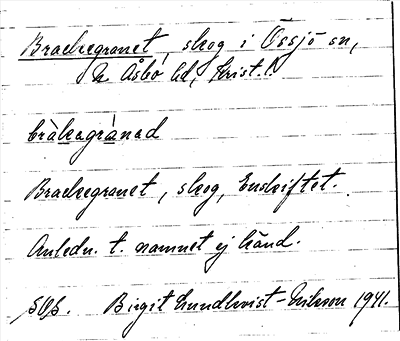 Brackegranet, skog i Össjö sn,
N Åsbo hd, Krist. l.
bràkagrànad
Brackegranet, skog, Enskiftet.
Anledn. t. namnet ej känd.
Birgit Lundkvist-Eriksson 1941.